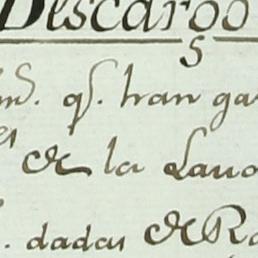 Descargo
s
ms. qs. han ga
es de la Lavo
. dadas de Ra